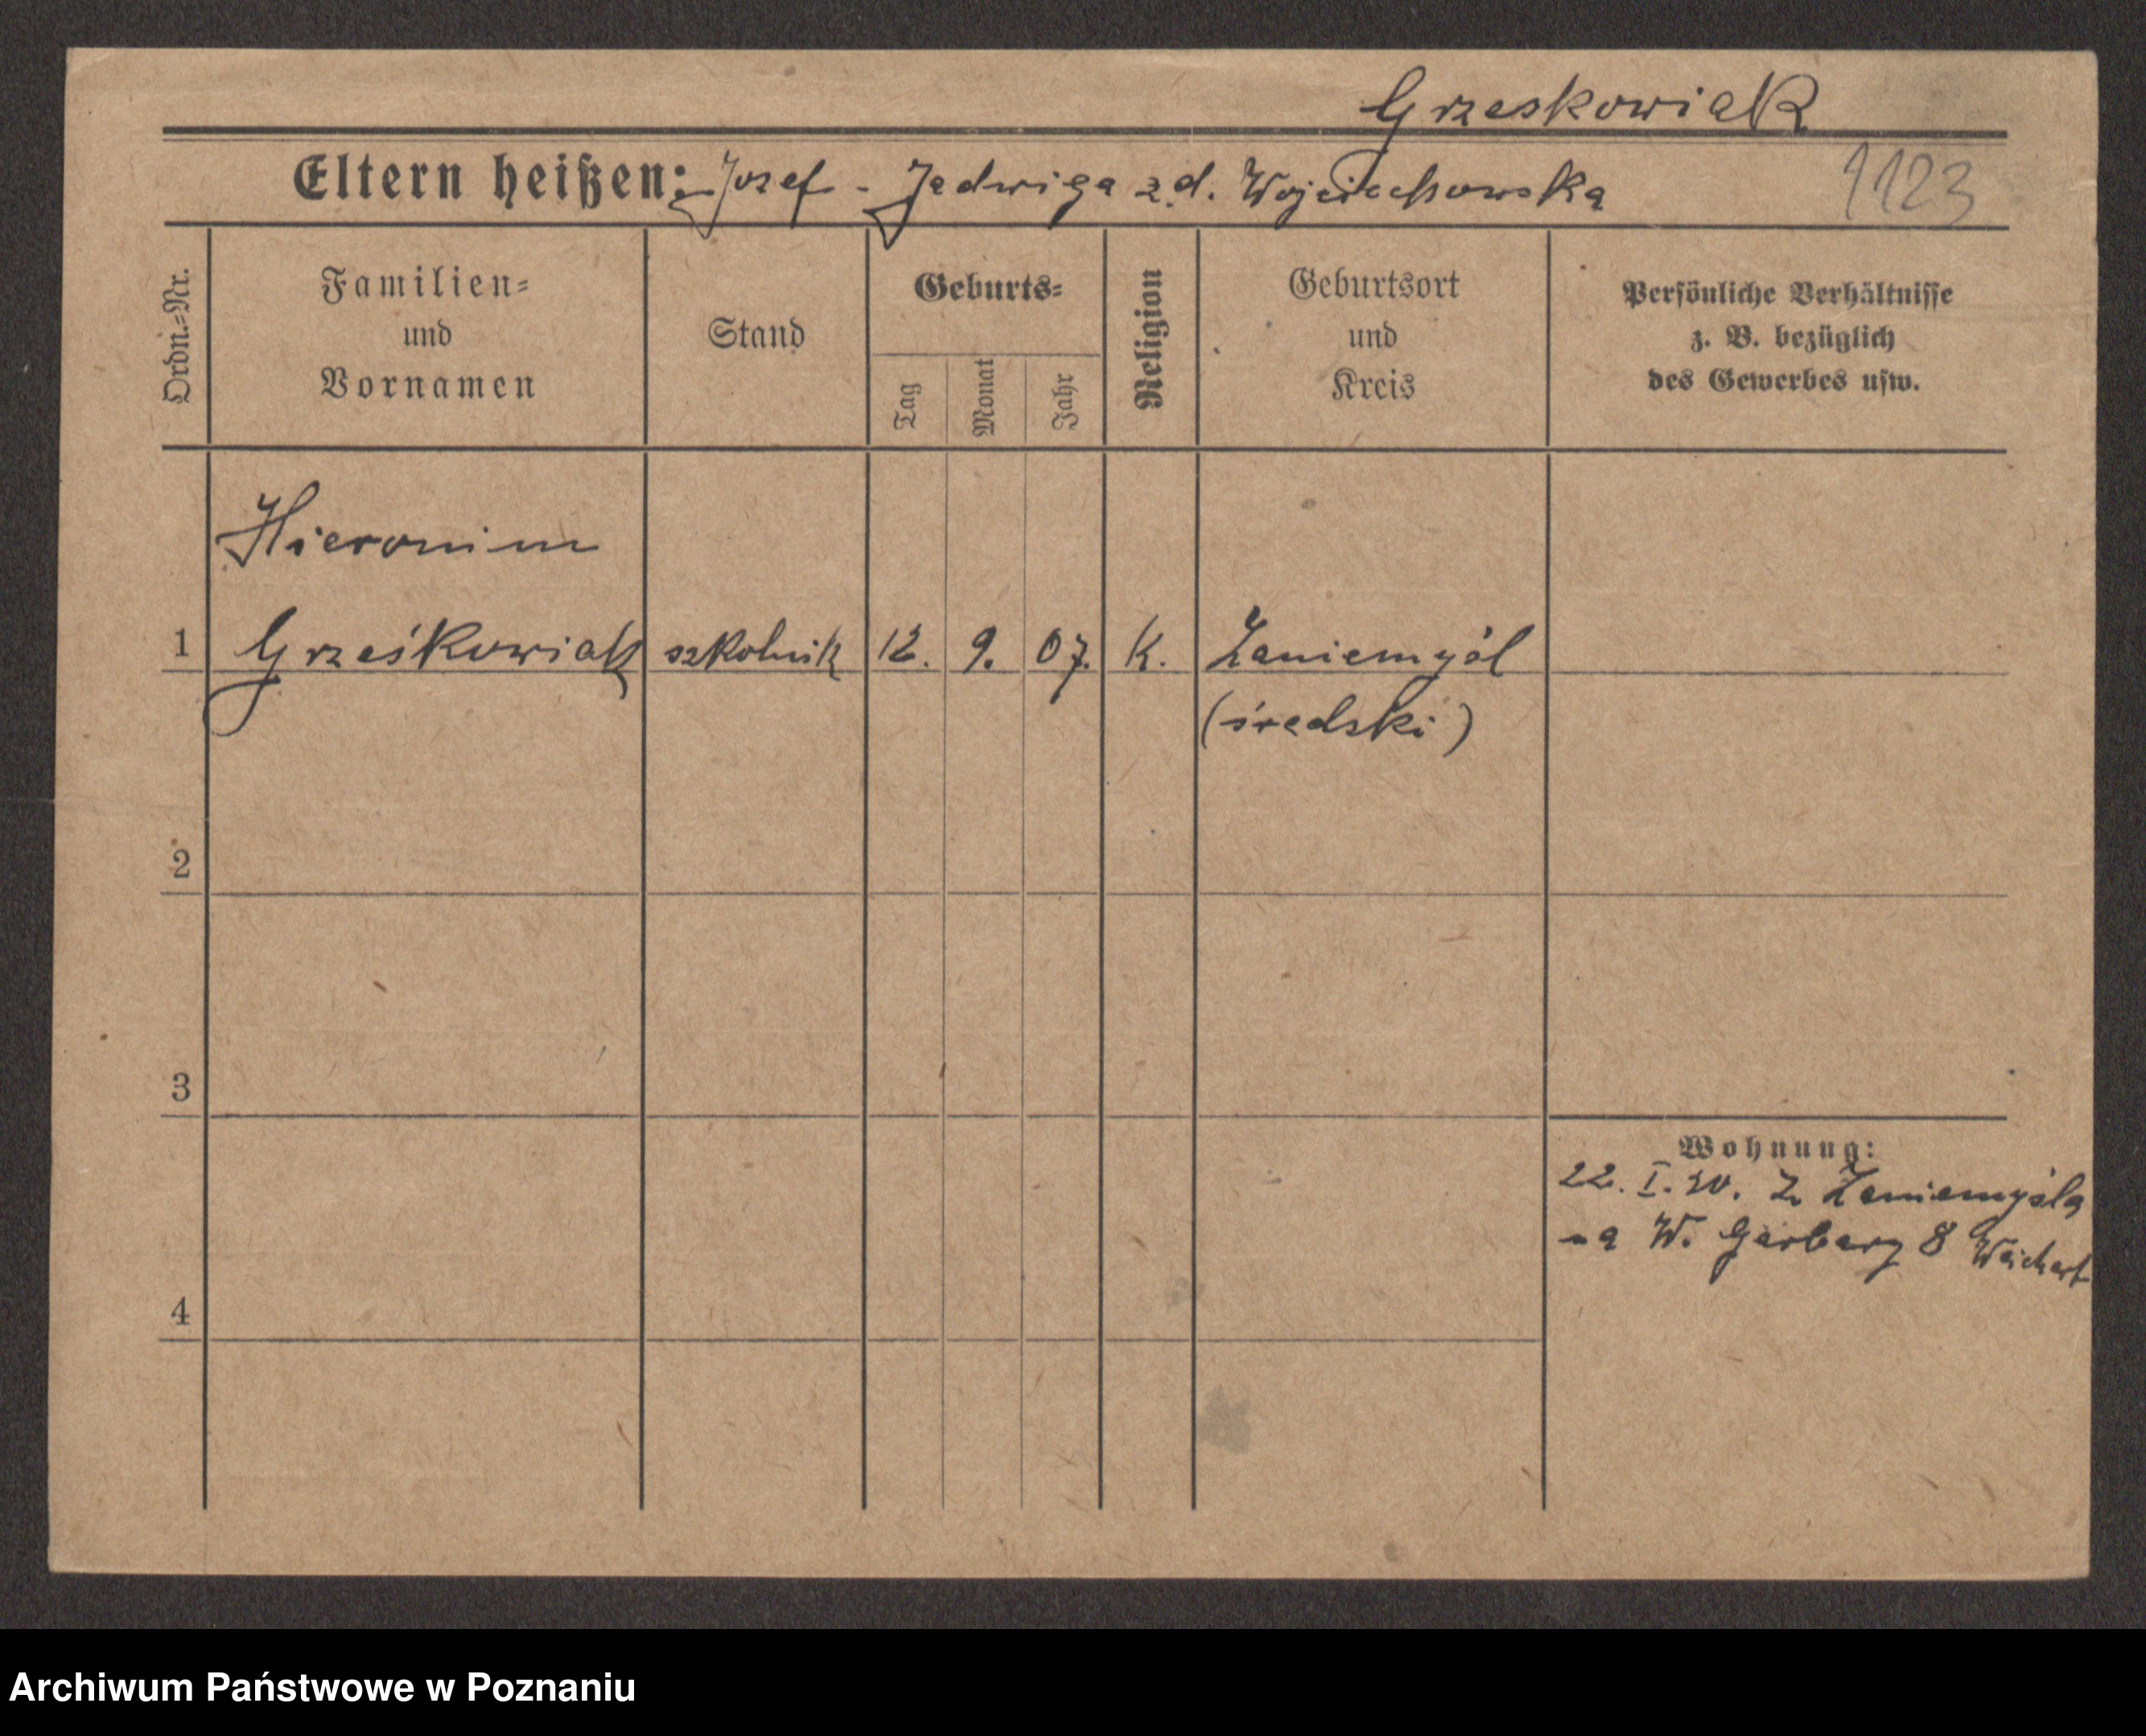 Grzeskowiak
Eltern heißen: Jozef - Jadwiga z d. Wojciechowska
1123
Ordn.=Nr.
Familien=
und
Vornamen
Stand
Geburts=
Tag
Monat
Jahr
Religion
Geburtsort
und
Kreis
Persönliche Verhältnisse
z. B. bezüglich
des Gewerbes usw.
Hieronim
1 Grześkowiak szkolnik 12. 9. 07. K. Zaniemyśl
(średski)
2
3
Wohnung:
22. I. 20. Z Zaniemyśla
na W. Garbary 8 Weichert
4
Archiwum Państwowe w Poznaniu